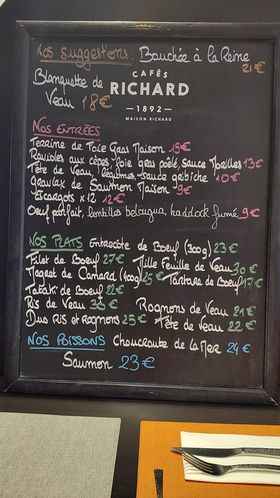 Nos Suggestions Bouchée à la Reine
21€
Blanquette de
Veau 18€
CAFÉS
RICHARD
1892
MAISON RICHARD
Nos ENTRÉES
Terrine de Foie Gras Maison 19€
Ravioles aux cèpes foie gras poêlé, sauce Morilles 13€
Tête de Veau, légumes, sauce gribiche 10€
Gravlax de Saumon Maison 9€
Escargots x 12 12€
Oeuf parfait, lentilles beluga, haddock fumé 9€
NOS PLATS Entrecote de Boeuf (300g) 23€
Filet de Boeuf 27€ Mille Feuille de Veau 30€
Magret de Canard (400g) 25€ Tartare de Boeuf 17€
Tataki de Boeuf 22€
Ris de Veau 38€ Rognons de Veau 21€
Duo Ris et Rognons 25€ Tête de Veau 22€
NOS POISSONS Choucroute de la Mer 24€
Saumon 23€